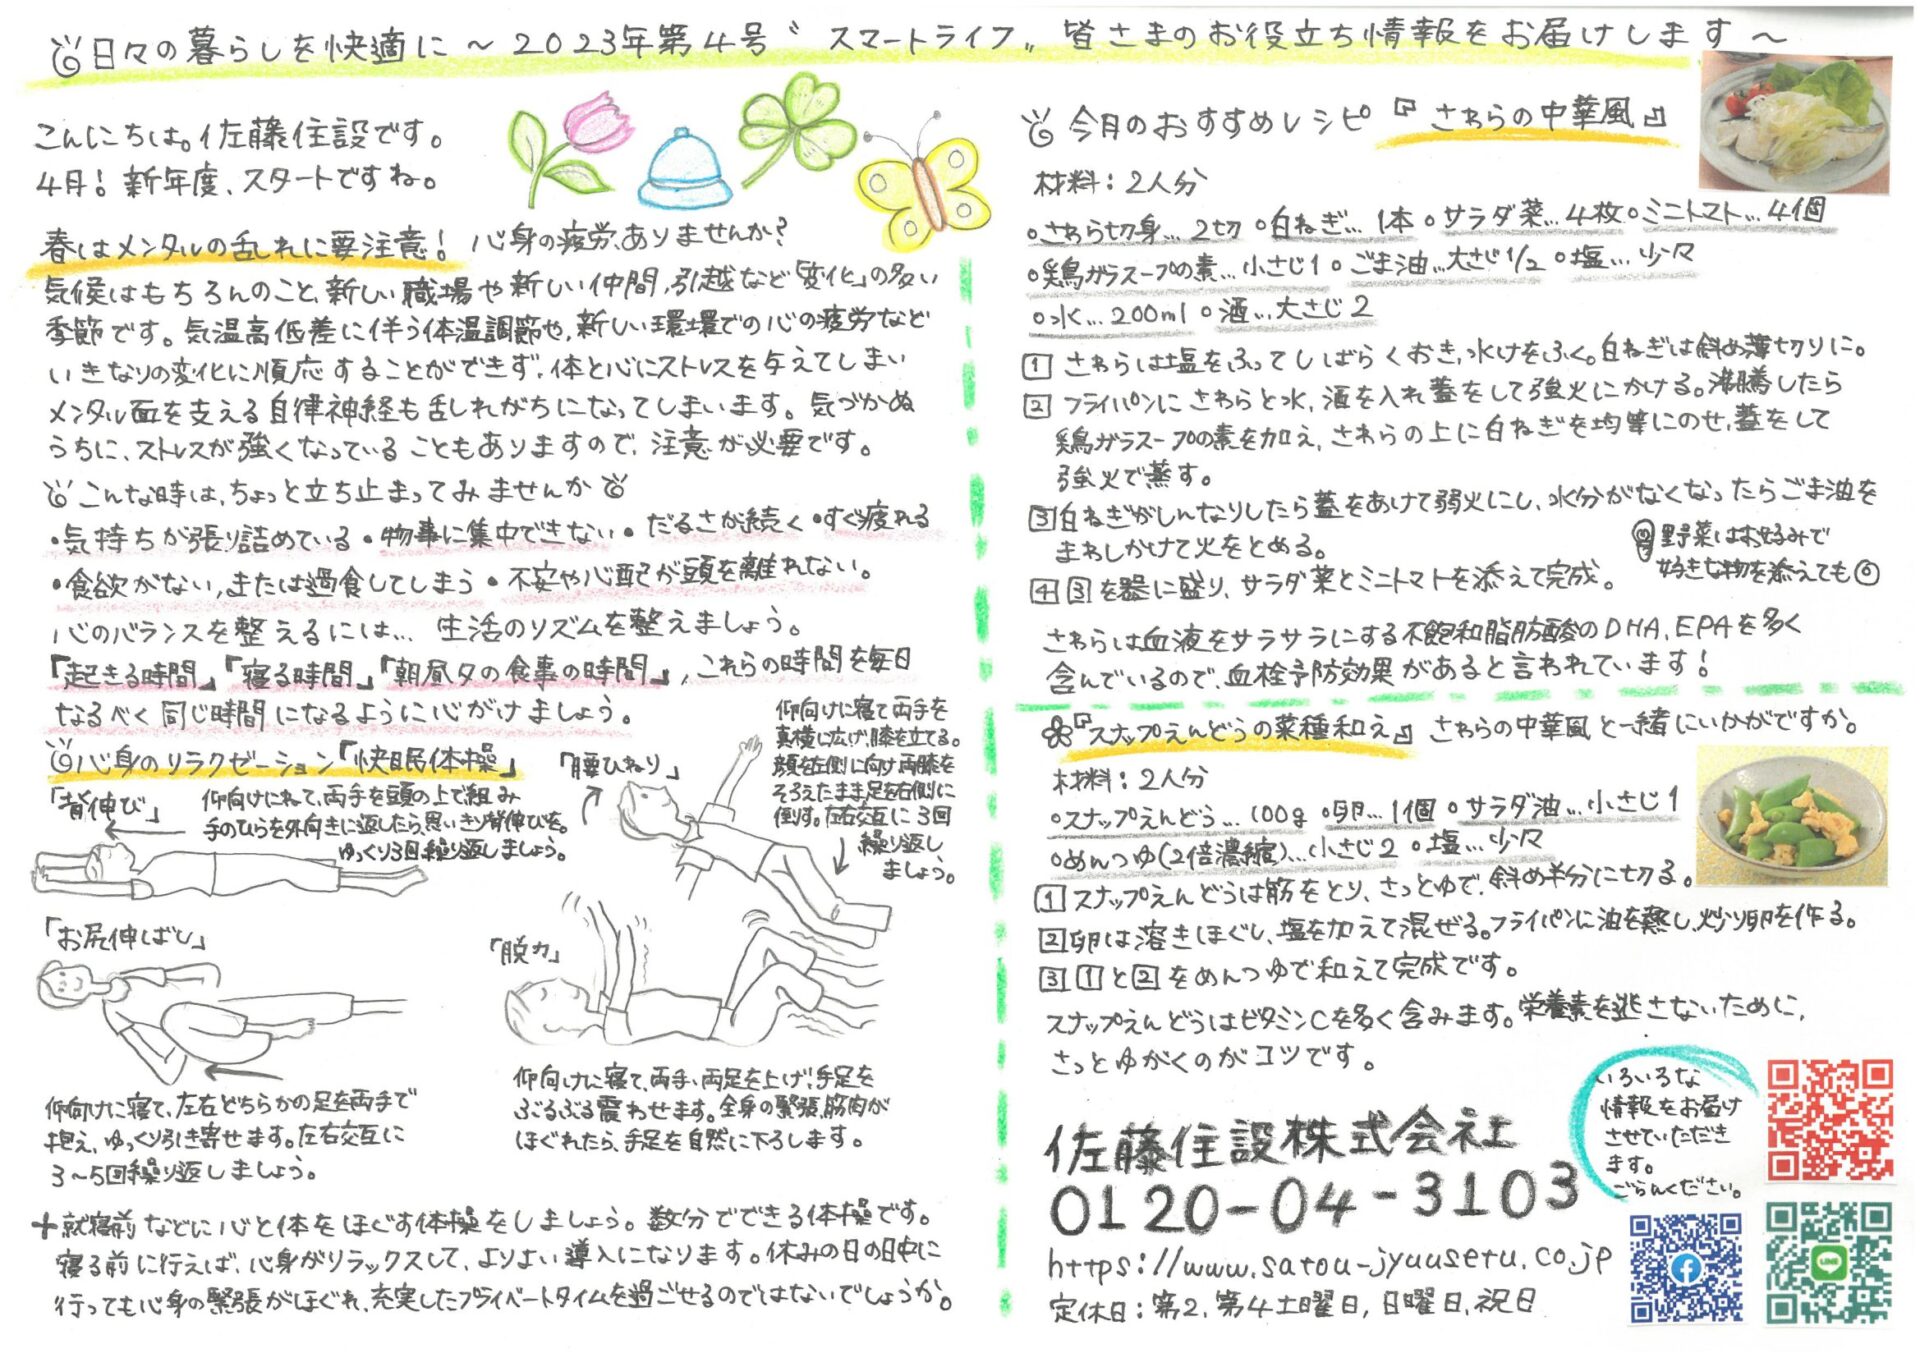 日々の暮らしを快適に～2023年第4号〝スマートライフ〟皆さまのお役立ち情報をお届けします～
こんにちは。佐藤住設です。
4月！新年度、スタートですね。
春はメンタルの乱れに要注意！ 心身の疲労、ありませんか？
気候はもちろんのこと、新しい職場や新しい仲間、引越など「変化」の多い
季節です。気温高低差に伴う体温調節や、新しい環境での心の疲労など
いきなりの変化に順応することができず、体と心にストレスを与えてしまい
メンタル面を支える自律神経も乱れがちになってしまいます。気づかぬ
うちに、ストレスが強くなっていることもありますので、注意が必要です。
こんな時は、ちょっと立ち止まってみませんか
・気持ちが張り詰めている・物事に集中できない・だるさが続く・すぐ疲れる
・食欲がない、または過食してしまう・不安や心配が頭を離れない。
心のバランスを整えるには… 生活のリズムを整えましょう。
『起きる時間』『寝る時間』『朝昼夕の食事の時間』、これらの時間を毎日
なるべく同じ時間になるように心がけましょう。
心身のリラクゼーション「快眠体操」
「背伸び」
仰向けにねて、両手を頭の上で組み
手のひらを外向きに返したら、思いきり背伸びを。
ゆっくり3回繰り返しましょう。
「腰ひねり」
仰向けに寝て両手を
真横に広げ、膝を立てる。
顔を左側に向け両膝を
そろえたまま、足を右側に
倒す。左右交互に3回
繰り返し
ましょう。
「お尻伸ばし」
仰向けに寝て、左右どちらかの足を両手で
抱え、ゆっくり引き寄せます。左右交互に
3～5回繰り返しましょう。
「脱力」
仰向けに寝て、両手、両足を上げ、手足を
ぶるぶる震わせます。全身の緊張、筋肉が
ほぐれたら、手足を自然に下ろします。
+就寝前などに心と体をほぐす体操をしましょう。数分でできる体操です。
寝る前に行えば、心身がリラックスして、よりよい導入になります。休みの日の日中に
行っても心身の緊張がほぐれ、充実したプライベートタイムを過ごせるのではないでしょうか。
今月のおすすめレシピ『さわらの中華風』
材料：2人分
○さわら切身…2切 ○白ねぎ…1本 ○サラダ菜…4枚 ○ミニトマト…4個
○鶏ガラスープの素…小さじ1 ○ごま油…大さじ1/2 ○塩…少々
○水…200ml ○酒…大さじ2
1 さわらは塩をふってしばらくおき、水けをふく。白ねぎは斜め薄切りに。
2 フライパンにさわらと水、酒を入れ蓋をして強火にかける。沸騰したら
鶏ガラスープの素を加え、さわらの上に白ねぎを均等にのせ、蓋をして
強火で蒸す。
3 白ねぎがしんなりしたら蓋をあけて弱火にし、水分がなくなったらごま油を
まわしかけて火をとめる。
野菜はお好みで
好きな物を添えても◎
4 3を器に盛り、サラダ菜とミニトマトを添えて完成。
さわらは血液をサラサラにする不飽和脂肪酸のDHA、EPAを多く
含んでいるので、血栓予防効果があると言われています！
『スナップえんどうの菜種和え』 さわらの中華風と一緒にいかがですか。
材料：2人分
○スナップえんどう…100g ○卵…1個 ○サラダ油…小さじ1
○めんつゆ(2倍濃縮)…小さじ2 ○塩…少々
1 スナップえんどうは筋をとり、さっとゆで、斜め半分に切る。
2 卵は溶きほぐし、塩を加えて混ぜる。フライパンに油を熱し、炒り卵を作る。
3 1と2をめんつゆで和えて完成です。
スナップえんどうはビタミンCを多く含みます。栄養素を逃さないために、
さっとゆがくのがコツです。
いろいろな
情報をお届け
させていただき
ます。
ごらんください。
佐藤住設株式会社
0120-04-3103
https://www.satou-jyuusetu.co.jp
定休日：第2、第4土曜日、日曜日、祝日
LINE